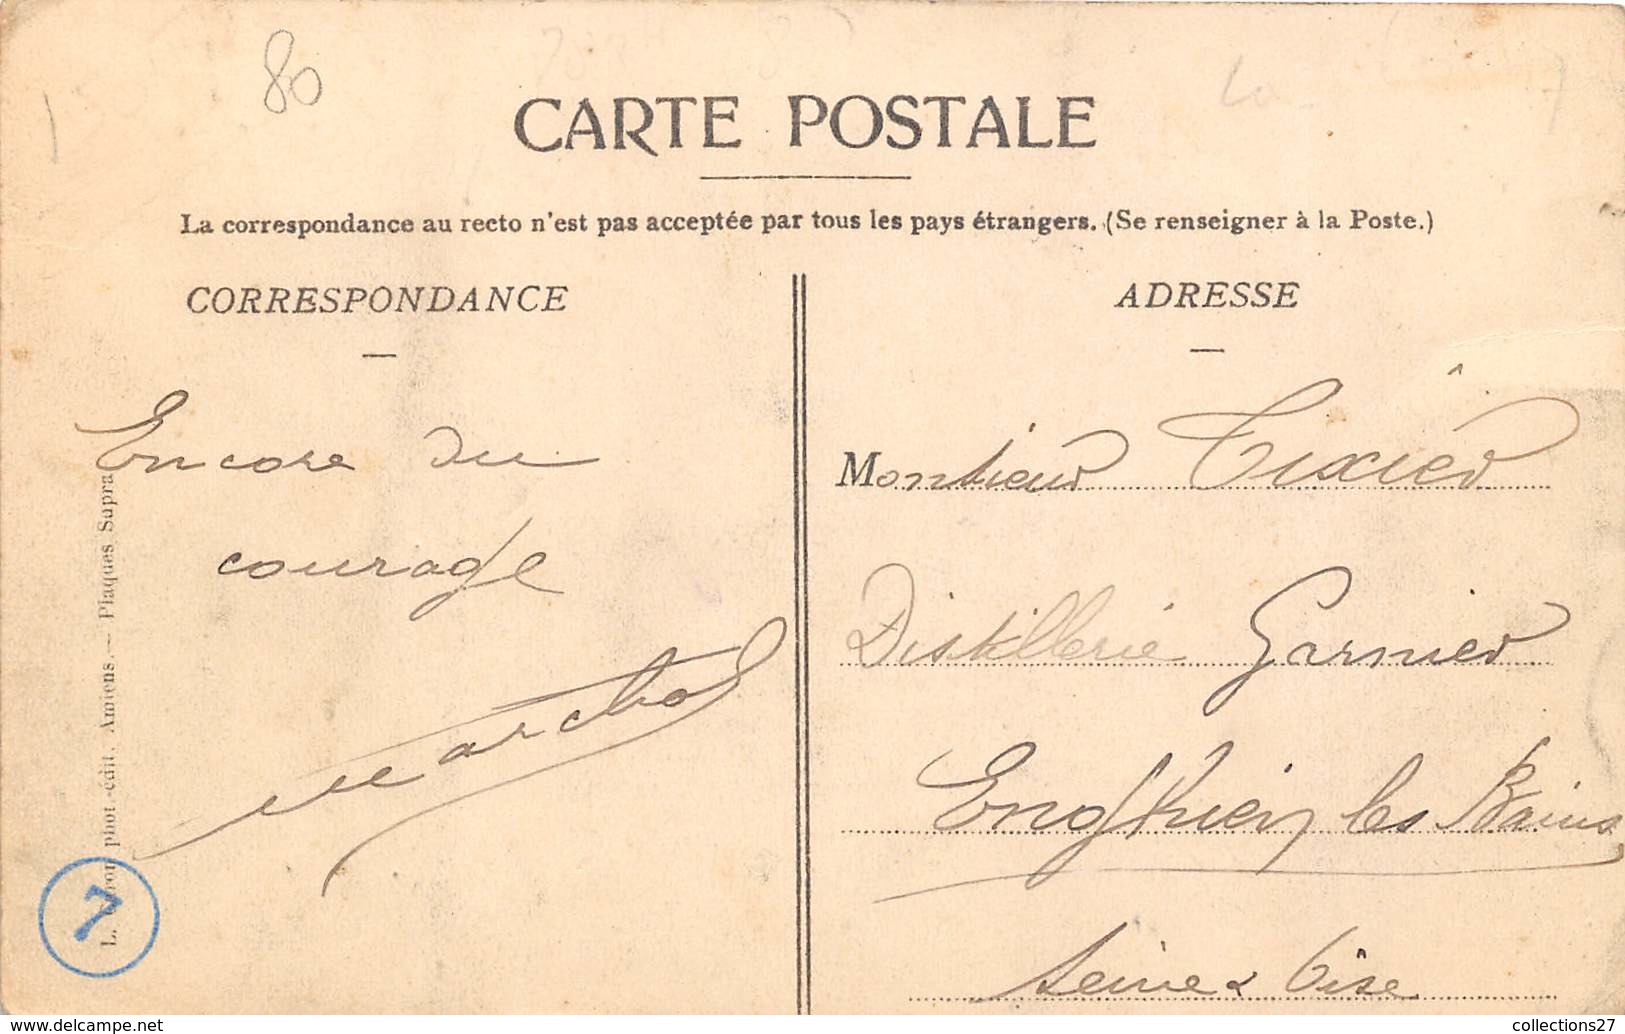 80
CARTE POSTALE
La correspondance au recto n'est pas acceptée par tous les pays étrangers. (Se renseigner à la Poste.)
CORRESPONDANCE
Encore du
courage
L. phot.-édit. Amiens. — Plaques Supra
7
ADRESSE
Monsieur Tixier
Distillerie Garnier
Enghien les Bains
Seine & Oise
collections27